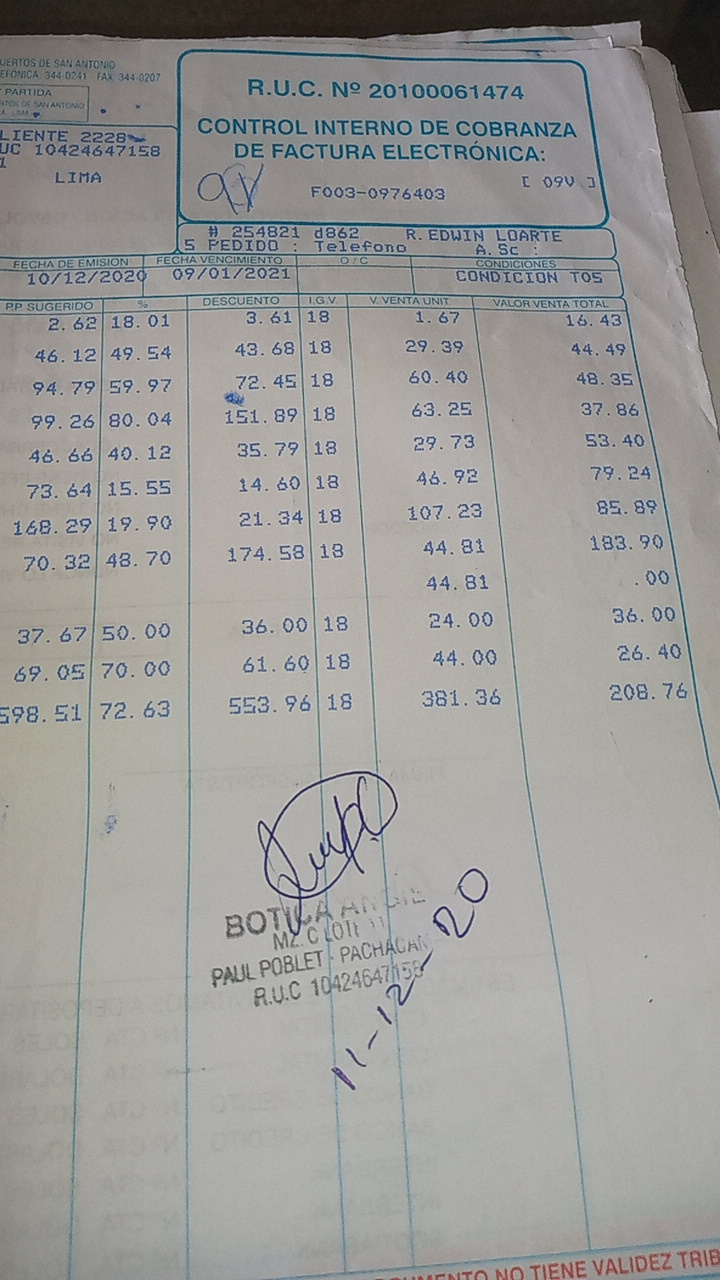 UERTOS DE SAN ANTONIO
EFONICA. 344-0241 FAX 344-0207
PARTIDA
RTOS DE SAN ANTONIO
LIMA
LIENTE 2228
UC 10424647158
1
LIMA
R.U.C. Nº 20100061474
CONTROL INTERNO DE COBRANZA
DE FACTURA ELECTRÓNICA:
F003-0976403 [ 09V ]
# 254821 d862 R. EDWIN LOARTE
5 PEDIDO : Telefono A. Sc :
FECHA DE EMISION FECHA VENCIMIENTO O / C CONDICIONES
10/12/2020 09/01/2021 CONDICION T05
P.P SUGERIDO % DESCUENTO I.G.V. V. VENTA UNIT VALOR VENTA TOTAL
2.62 18.01 3.61 18 1.67 16.43
46.12 49.54 43.68 18 29.39 44.49
94.79 59.97 72.45 18 60.40 48.35
99.26 80.04 151.89 18 63.25 37.86
46.66 40.12 35.79 18 29.73 53.40
73.64 15.55 14.60 18 46.92 79.24
168.29 19.90 21.34 18 107.23 85.89
70.32 48.70 174.58 18 44.81 183.90
44.81 .00
37.67 50.00 36.00 18 24.00 36.00
69.05 70.00 61.60 18 44.00 26.40
598.51 72.63 553.96 18 381.36 208.76
BOTICA ANGIE
MZ. C LOTE
PAUL POBLET - PACHACAM
R.U.C 10424647158
11-12-20
CUMENTO NO TIENE VALIDEZ TRIB